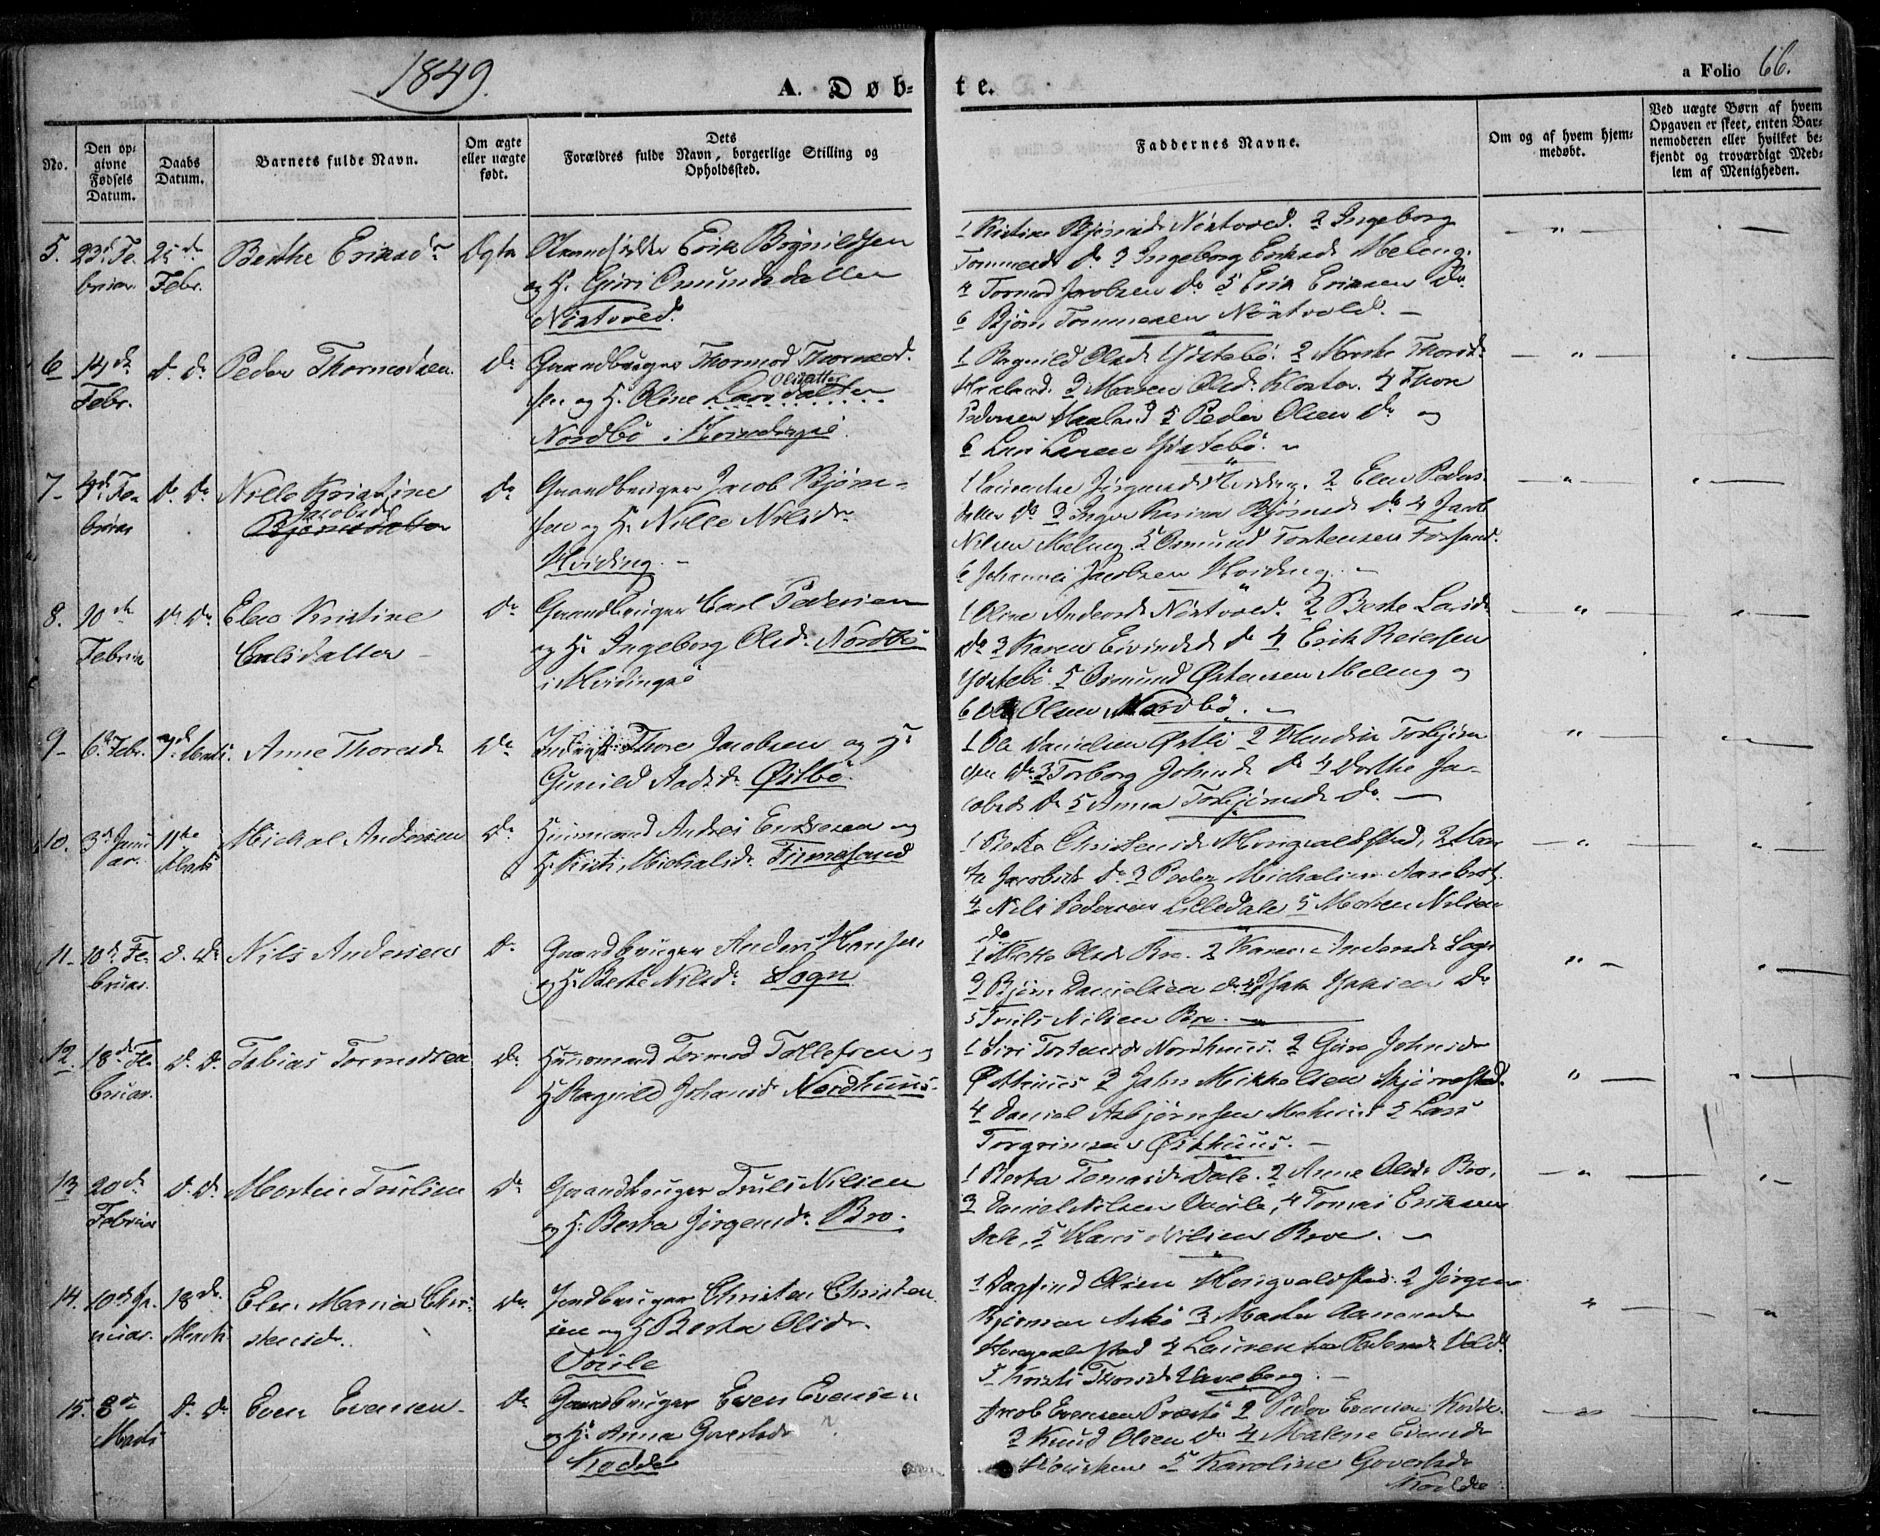 1849.
A. Døb-
te.
a Folio 66.
No.
Den op-
givne
Fødsels
Datum.
Daabs
Datum.
Barnets fulde Navn.
Om ægte
eller uægte
født.
Dets
Forældres fulde Navn, borgerlige Stilling og
Opholdssted.
Faddernes Navne.
Om og af hvem hjem-
medøbt.
Ved uægte Børn af hvem
Opgaven er skeet, enten Bar-
nemoderen eller hvilket be-
kjendt og troværdigt Med-
lem af Menigheden.
5. 23d Fe-
bruar.
25de
Febr.
Berthe Eriksdr
Ægte
Erik Bognildsen
og H. Guri Omundsdatter
Nextvold.
1 Kistine Bjørnsd Nextvold. 2 Ingeborg
Tommesd do 3 Ingeborg Eriksd Meleng.
4 Tormod Jacobsen do 5 Erik Eriksen do
6 Bjørn Tommesen Nextvold. —
6 14de
Febr.
d. do
Peder Thormodsen.
do
Gaardbruger Thormod Thormod-
sen og H. Oline Larsdatter
Olsdatter
Nordbø i
1 Bognild Olsd Ydstebø. 2 Thorsd
3 Maren Olsd. Kloster. 4 Thore
Pedersen 5 Peder Olsen do og
6 Lars Larsen Ydstebø.
7- 4d Fe-
bruar
do do
Nille Kristine
Jacobsd
Bjørnsdatter
do
Gaardbruger Jacob Bjørn-
sen og H. Nille Nilsdr
Hviding. -
1 Laurentse Jørgensd Hviding. 2 Elen Peders-
datter do 3 Inger Karina Bjørnsd do 4 Jacob
Nilsen Meleng. 5 Osmund Tostensen Fossand.
6 Johannes Jacobsen Hviding. -
8. 10de
Februar
do do
Elen Kristine
Carlsdatter -
do
Gaardbruger Carl Pedersen
og H. Ingeborg Olsd. Nordbø
i Hvidingsø
1 Oline Andersd Nextvold. 2 Berte Larsd
do 3 Karen Eivindsd do 4 Erik Reiersen
Ydstebø. 5 Osmund Østensen Meleng og
6 Ole Olsen Nordbø. -
9- 6d Febr.
7d Marts.
Anne Thoresd
do
Thore Jacobsen og H.
Gunild Aadsd. Østbø.
1 Ole Danielsen Østbø 2 Torbjørn-
sen do 3 Torborg Johnsd do 4 Dorthe Ja-
cobsd do 5 Anna Torbjørnsd do. —
10. 3d Janu-
ar.
11te
Marts
Michal Andersen
do
Huusmand Andres Endresen og
H. Kisti Michalsd. Finnesand
1 Berta Christensd Hongvaldstad, 2 Mar-
ta Jacobsd do 3 Peder Michalsen Aarebrot.
4 Nils Pedersen Lilledale 5 Morten Nilsen
do
11- 10d Fe-
bruar.
d. do
Nils Andersen
do
Gaardbruger Anders Hansen
og H. Berte Nilsd. Sogn
1 Mette Olsd Bro. 2 Karen Andersd Sogn
3 Bjørn Danielsen do. 4 Isak Isaksen do
5 Truls Nilsen Bro. —
12. 18d Fe-
bruar.
d. d.
Tobias Tormodsen
do
Huusmand Tormod Tollefsen og
H. Ragnild Johansd Nordhuus.
1 Siri Tostensd Nordhuus. 2 Guro Johnsd
Østhuus 3 John Mikkelsen Skjørvestad.
4 Daniel Asbjørnsen 5 Lars
Torgrimsen Østhuus. -
13 20de
Februar
d. d.
Morten Trulsen
do
Gaardbruger Truls Nilsen
og H. Berta Jørgensd. Bro.
1 Berta Tomasd Dale. 2 Anne Olsd Bro,
3 Daniel Nilsen Voule, 4 Tomas Eriksen
Dale, 5 Hans Nilsen Broe. -
14. 10d Ja-
nuar.
18de
Marts
Elen Maria Chri-
stensd.
do
Jordbruger Christen Christen-
sen og H Berta Olsd.
Voule
1 Dagfind Olsen Hongvaldstad. 2 Jørgen
Bjørnsen Askø 3 Marta Aanensd
Hongvaldstad 4 Laurentse Pedersd Vold.
5 Kirsti Thorsd Varaberg. -
15. 8de
Marts
d. do
Even Evensen.
do
Gaardbruger Even Evensen
og H. Anna Govertsd
Nodde
Jacob Evensen Præstø 2 Peder Evensen Nodde.
3 Knud Olsen do 4 Malene Evensd
5 Karoline Govertsd
Nodde.